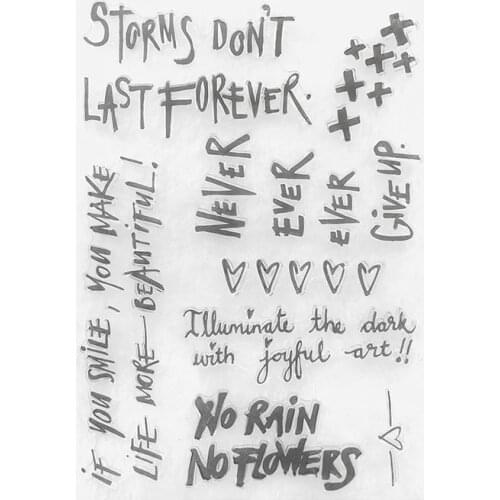 STORMS DON'T
LAST FOREVER.
NEVER
EVER
EVER
GIVE UP.
IF YOU SMILE, YOU MAKE
LIFE MORE BEAUTIFUL!
Illuminate the dark
with joyful art!!
NO RAIN
NO FLOWERS